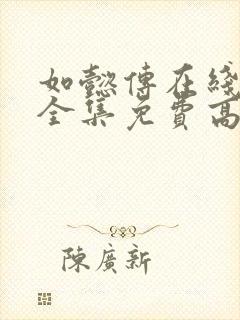 如懿傳在綫
全集免費高
陳廣新